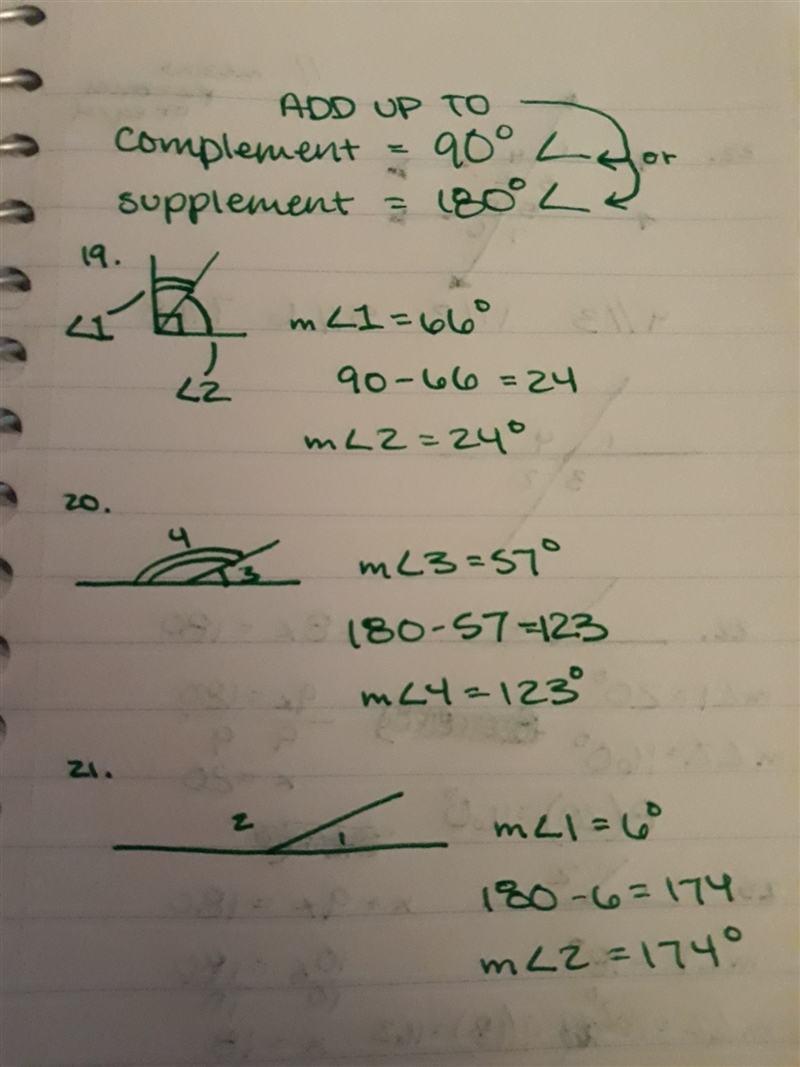 ADD UP TO
complement = 90° ∠ or
supplement = 180° ∠
19.
∠1
∠2
m∠1 = 66°
90 - 66 = 24
m∠2 = 24°
20.
4
3
m∠3 = 57°
180 - 57 = 123
m∠4 = 123°
21.
2
1
m∠1 = 6°
180 - 6 = 174
m∠2 = 174°